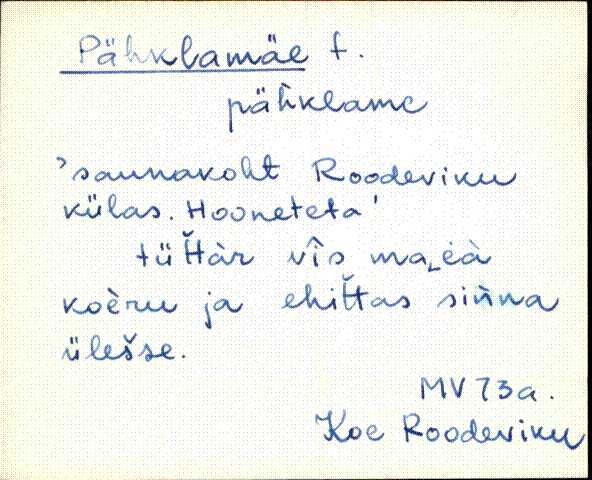 Pähklamäe t.
pähklame
'saunakoht Roodeviku
külas. Hooneteta'
tüt̆t̆àr vîs ma͜ɛà
koèru ja ehit̆t̆as siǹna
ülešse.
MV 73a.
Koe Roodeviku